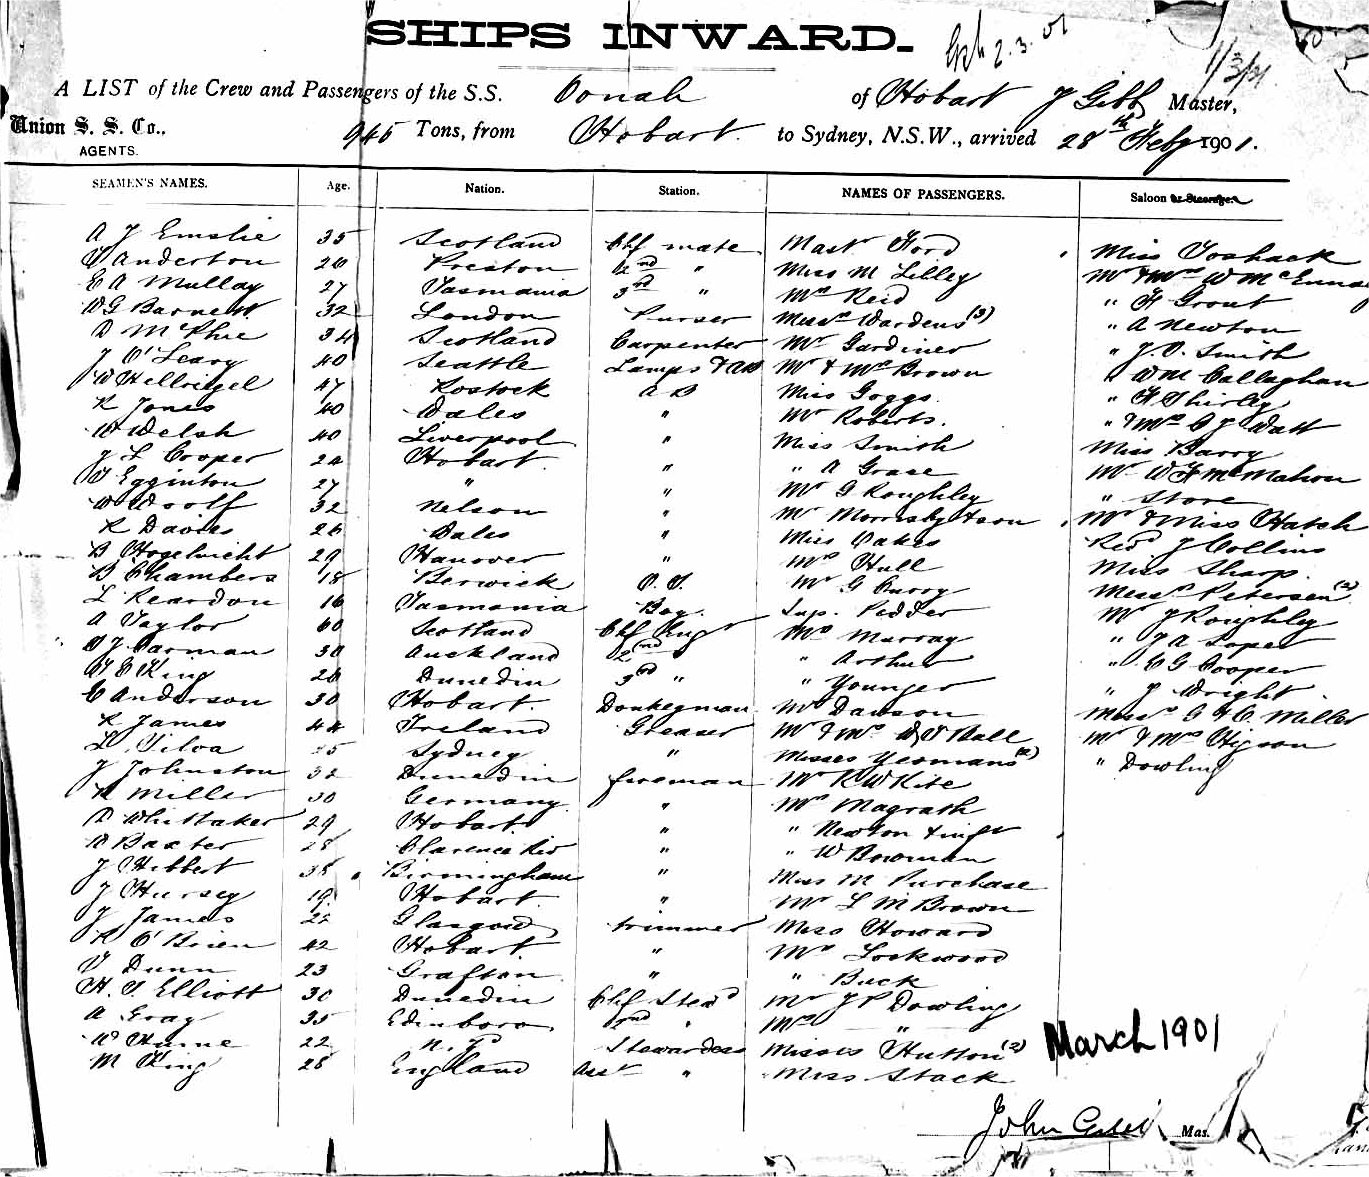 SHIPS INWARD.
2.3.01
1/3/01
A LIST of the Crew and Passengers of the S.S. Oonah of Hobart J Gibb Master,
Union S. S. Co., 945 Tons, from Hobart to Sydney, N.S.W., arrived 28th Feby 1901.
AGENTS.
SEAMEN'S NAMES. Age. Nation. Station. NAMES OF PASSENGERS. Saloon or Steerage.
A J Emslie 35 Scotland Chf mate Mast Ford Miss Toshack
Anderton 26 Preston 2nd " Miss M Lilley Mr & Mrs W McEnnay
E A Mullay 27 Tasmania 3rd " Mrs Reid " F Grout
W G Barnett 32 London Purser Misses Wardens (3) " A Newton
D McPhie 34 Scotland Carpenter Mr Gardiner " J. O. Smith
J O'Leary 40 Seattle Lamps & AB Mr & Mrs Brown " WM Callaghan
W Hellrigel 47 Rostock A B Miss Goggs. " F Shirley
R Jones 40 Wales " Mr Roberts. " & Mrs C J Watt
W Welsh 40 Liverpool " Miss Smith Miss Barry
J L Cooper 24 Hobart " " A Grase Mr W F McMahon
Egginton 27 " " Mr G Roughley " Stove
W Woolf 32 Nelson " Mr Mornsby & son Mr & Miss Hatch
R Davies 26 Wales " Miss Oakes Rev J Collins
B Hogelnicht 29 Hanover " Mrs Hull Miss Sharp.
B Chambers 18 Berwick O. S. Mr G Curry Misses Petersen (2)
L Reardon 16 Tasmania Boy. Sup. Pedder Mr J Roughley
A Taylor 60 Scotland Chf Engr Mrs Murray " J A Loper
Carman 30 Auckland 2nd " " Arthur " C G Cooper
King 26 Dunedin 3rd " " Younger " J Wright
C Anderson 30 Hobart. Donkeyman Mr Dawson Misses G & C. Miller
R James 44 Ireland Greaser Mr & Mrs Ball Mr & Mrs Higson
L Silva Sydney " Misses Yeomans (2) " Dowling
J Johnston 32 Dunedin fireman Mr R W Kite
Miller 30 Germany " Mrs Magrath
D Whittaker 29 Hobart. " " Newton & inft
Baxter 28 Clarence Riv " " W Bowman
J Hibbert 38 Birmingham " Miss M Purchase
J Hursey 19 Hobart. " Mr L M Brown
J James 22 Glasgow trimmer Miss Howard
R O'Brien 42 Hobart " Mrs Lockwood
Dunn 23 Grafton " " Buck
H. S. Elliott 30 Dunedin Chf Stewd Mr J P Dowling
A Gray 35 Edinboro 2nd " Mrs "
W Hume 22 N. Z. Stewardess Misses Hutton (2)
M King 28 England Asst " Miss Stack
March 1901
John Gibb Mas.